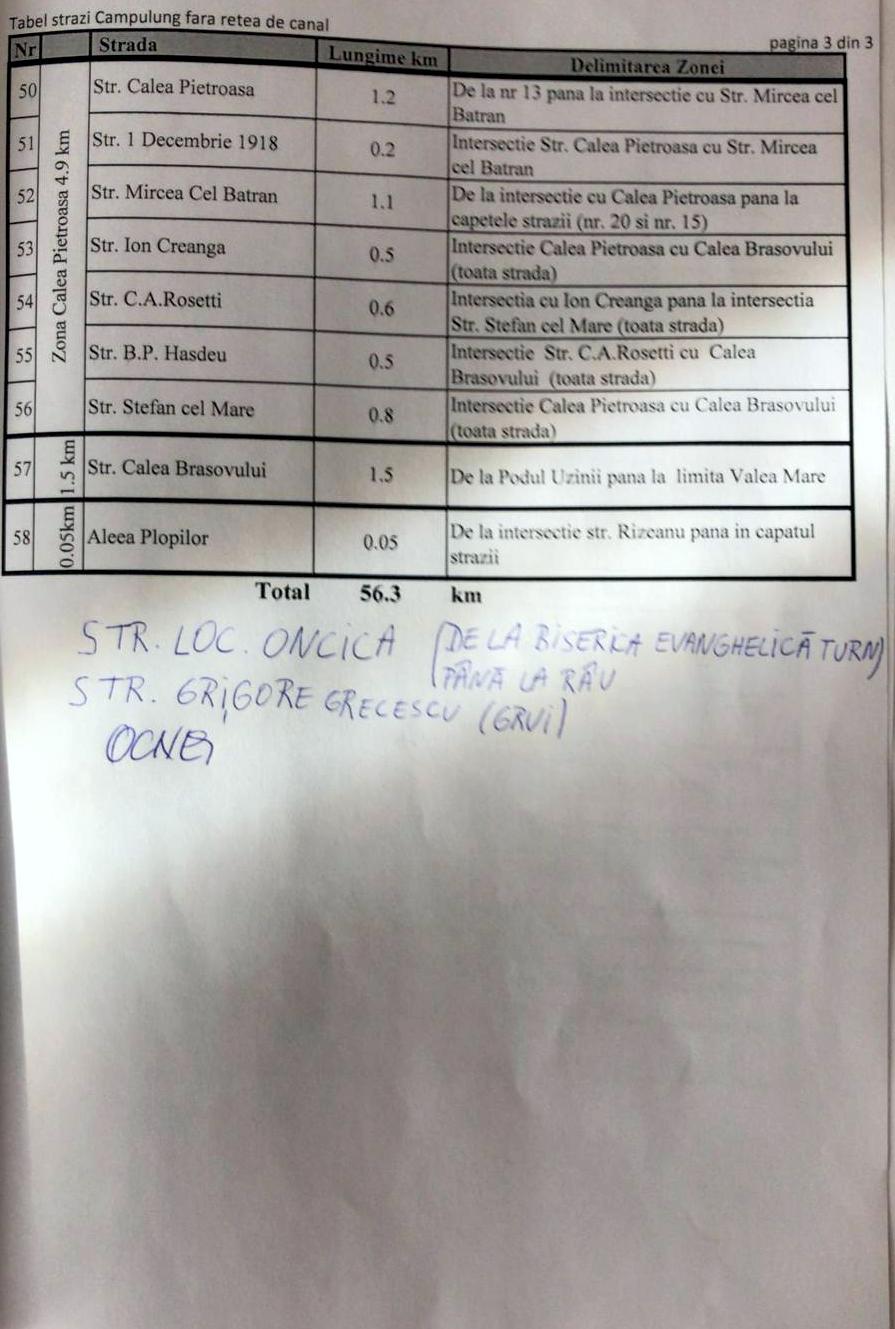 Tabel strazi Campulung fara retea de canal
pagina 3 din 3
Nr Strada Lungime km Delimitarea Zonei
Zona Calea Pietroasa 4.9 km
50 Str. Calea Pietroasa 1.2 De la nr 13 pana la intersectie cu Str. Mircea cel
Batran
51 Str. 1 Decembrie 1918 0.2 Intersectie Str. Calea Pietroasa cu Str. Mircea
cel Batran
52 Str. Mircea Cel Batran 1.1 De la intersectie cu Calea Pietroasa pana la
capetele strazii (nr. 20 si nr. 15)
53 Str. Ion Creanga 0.5 Intersectie Calea Pietroasa cu Calea Brasovului
(toata strada)
54 Str. C.A.Rosetti 0.6 Intersectia cu Ion Creanga pana la intersectia
Str. Stefan cel Mare (toata strada)
55 Str. B.P. Hasdeu 0.5 Intersectie Str. C.A.Rosetti cu Calea
Brasovului (toata strada)
56 Str. Stefan cel Mare 0.8 Intersectie Calea Pietroasa cu Calea Brasovului
(toata strada)
57 1.5 km Str. Calea Brasovului 1.5 De la Podul Uzinii pana la limita Valea Mare
58 0.05km Aleea Plopilor 0.05 De la intersectie str. Rizeanu pana in capatul
strazii
Total 56.3 km
STR. LOC. ONCICA (DE LA BISERICA EVANGHELICĂ TURN)
PÂNĂ LA RÂU
STR. GRIGORE GRECESCU (GRUI)
OCNEI